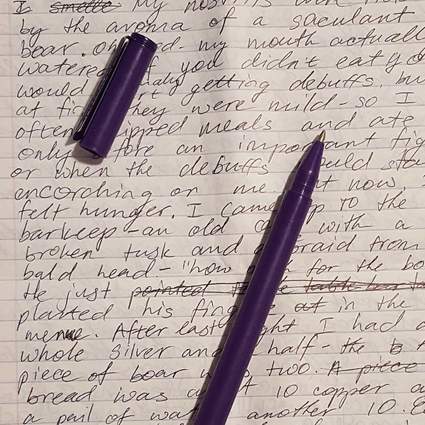 I ~~smelle~~ My nostrils
by the aroma of a succulant
boar. Oh d. my mouth actuall
watered if you didn't eat yo
would getting debuffs, bu
at fi they were mild - so I
often ipped meals and ate
only fore an important fig
or when the debuffs ould sta
encorching on me t now,
felt hunger. I came p to the
barkeep - an old with a
broken tusk and braid from
bald head - "how for the bo
He just ~~pointed~~ ~~table~~
planted his fing ~~at~~ in the
menue. After last ght I had a
whole silver and half - ~~the b~~
piece of boar w two. ~~A piece~~
bread was 10 copper a
a pail of wat another 10.